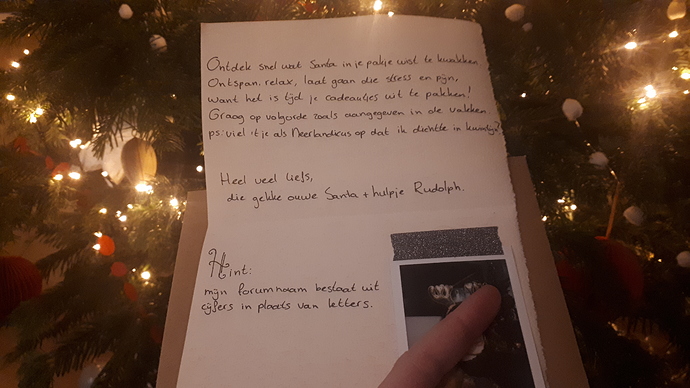 Ontdek snel wat Santa in je pakje wist te kwakken.
Ontspan, relax, laat gaan die stress en pijn,
want het is tijd je cadeautjes uit te pakken!
Graag op volgorde zoals aangegeven in de vakken
ps: viel it je als Neerlandicus op dat ik dichtte in kwintijn?
Heel veel liefs,
die gekke ouwe Santa + hulpje Rudolph.
Hint:
mijn forumnaam bestaat uit
cijfers in plaats van letters.